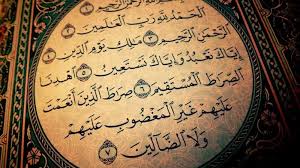 ٱلۡحَمۡدُ لِلَّهِ رَبِّ ٱلۡعَٰلَمِينَ
٢ ٱلرَّحۡمَٰنِ ٱلرَّحِيمِ ٣ مَٰلِكِ يَوۡمِ ٱلدِّينِ
٤ إِيَّاكَ نَعۡبُدُ وَإِيَّاكَ نَسۡتَعِينُ ٥ ٱهۡدِنَا
ٱلصِّرَٰطَ ٱلۡمُسۡتَقِيمَ ٦ صِرَٰطَ ٱلَّذِينَ أَنۡعَمۡتَ
عَلَيۡهِمۡ غَيۡرِ ٱلۡمَغۡضُوبِ عَلَيۡهِمۡ
وَلَا ٱلضَّآلِّينَ ٧